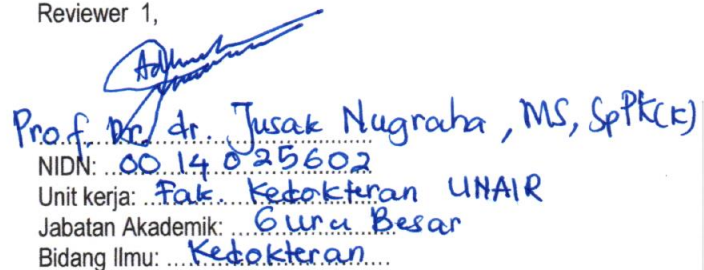 Reviewer 1,
Prof. Dr. dr. Jusak Nugraha, MS, SpPK(K)
NIDN: 0014025602
Unit kerja: Fak. Kedokteran UNAIR
Jabatan Akademik: Guru Besar
Bidang Ilmu: Kedokteran